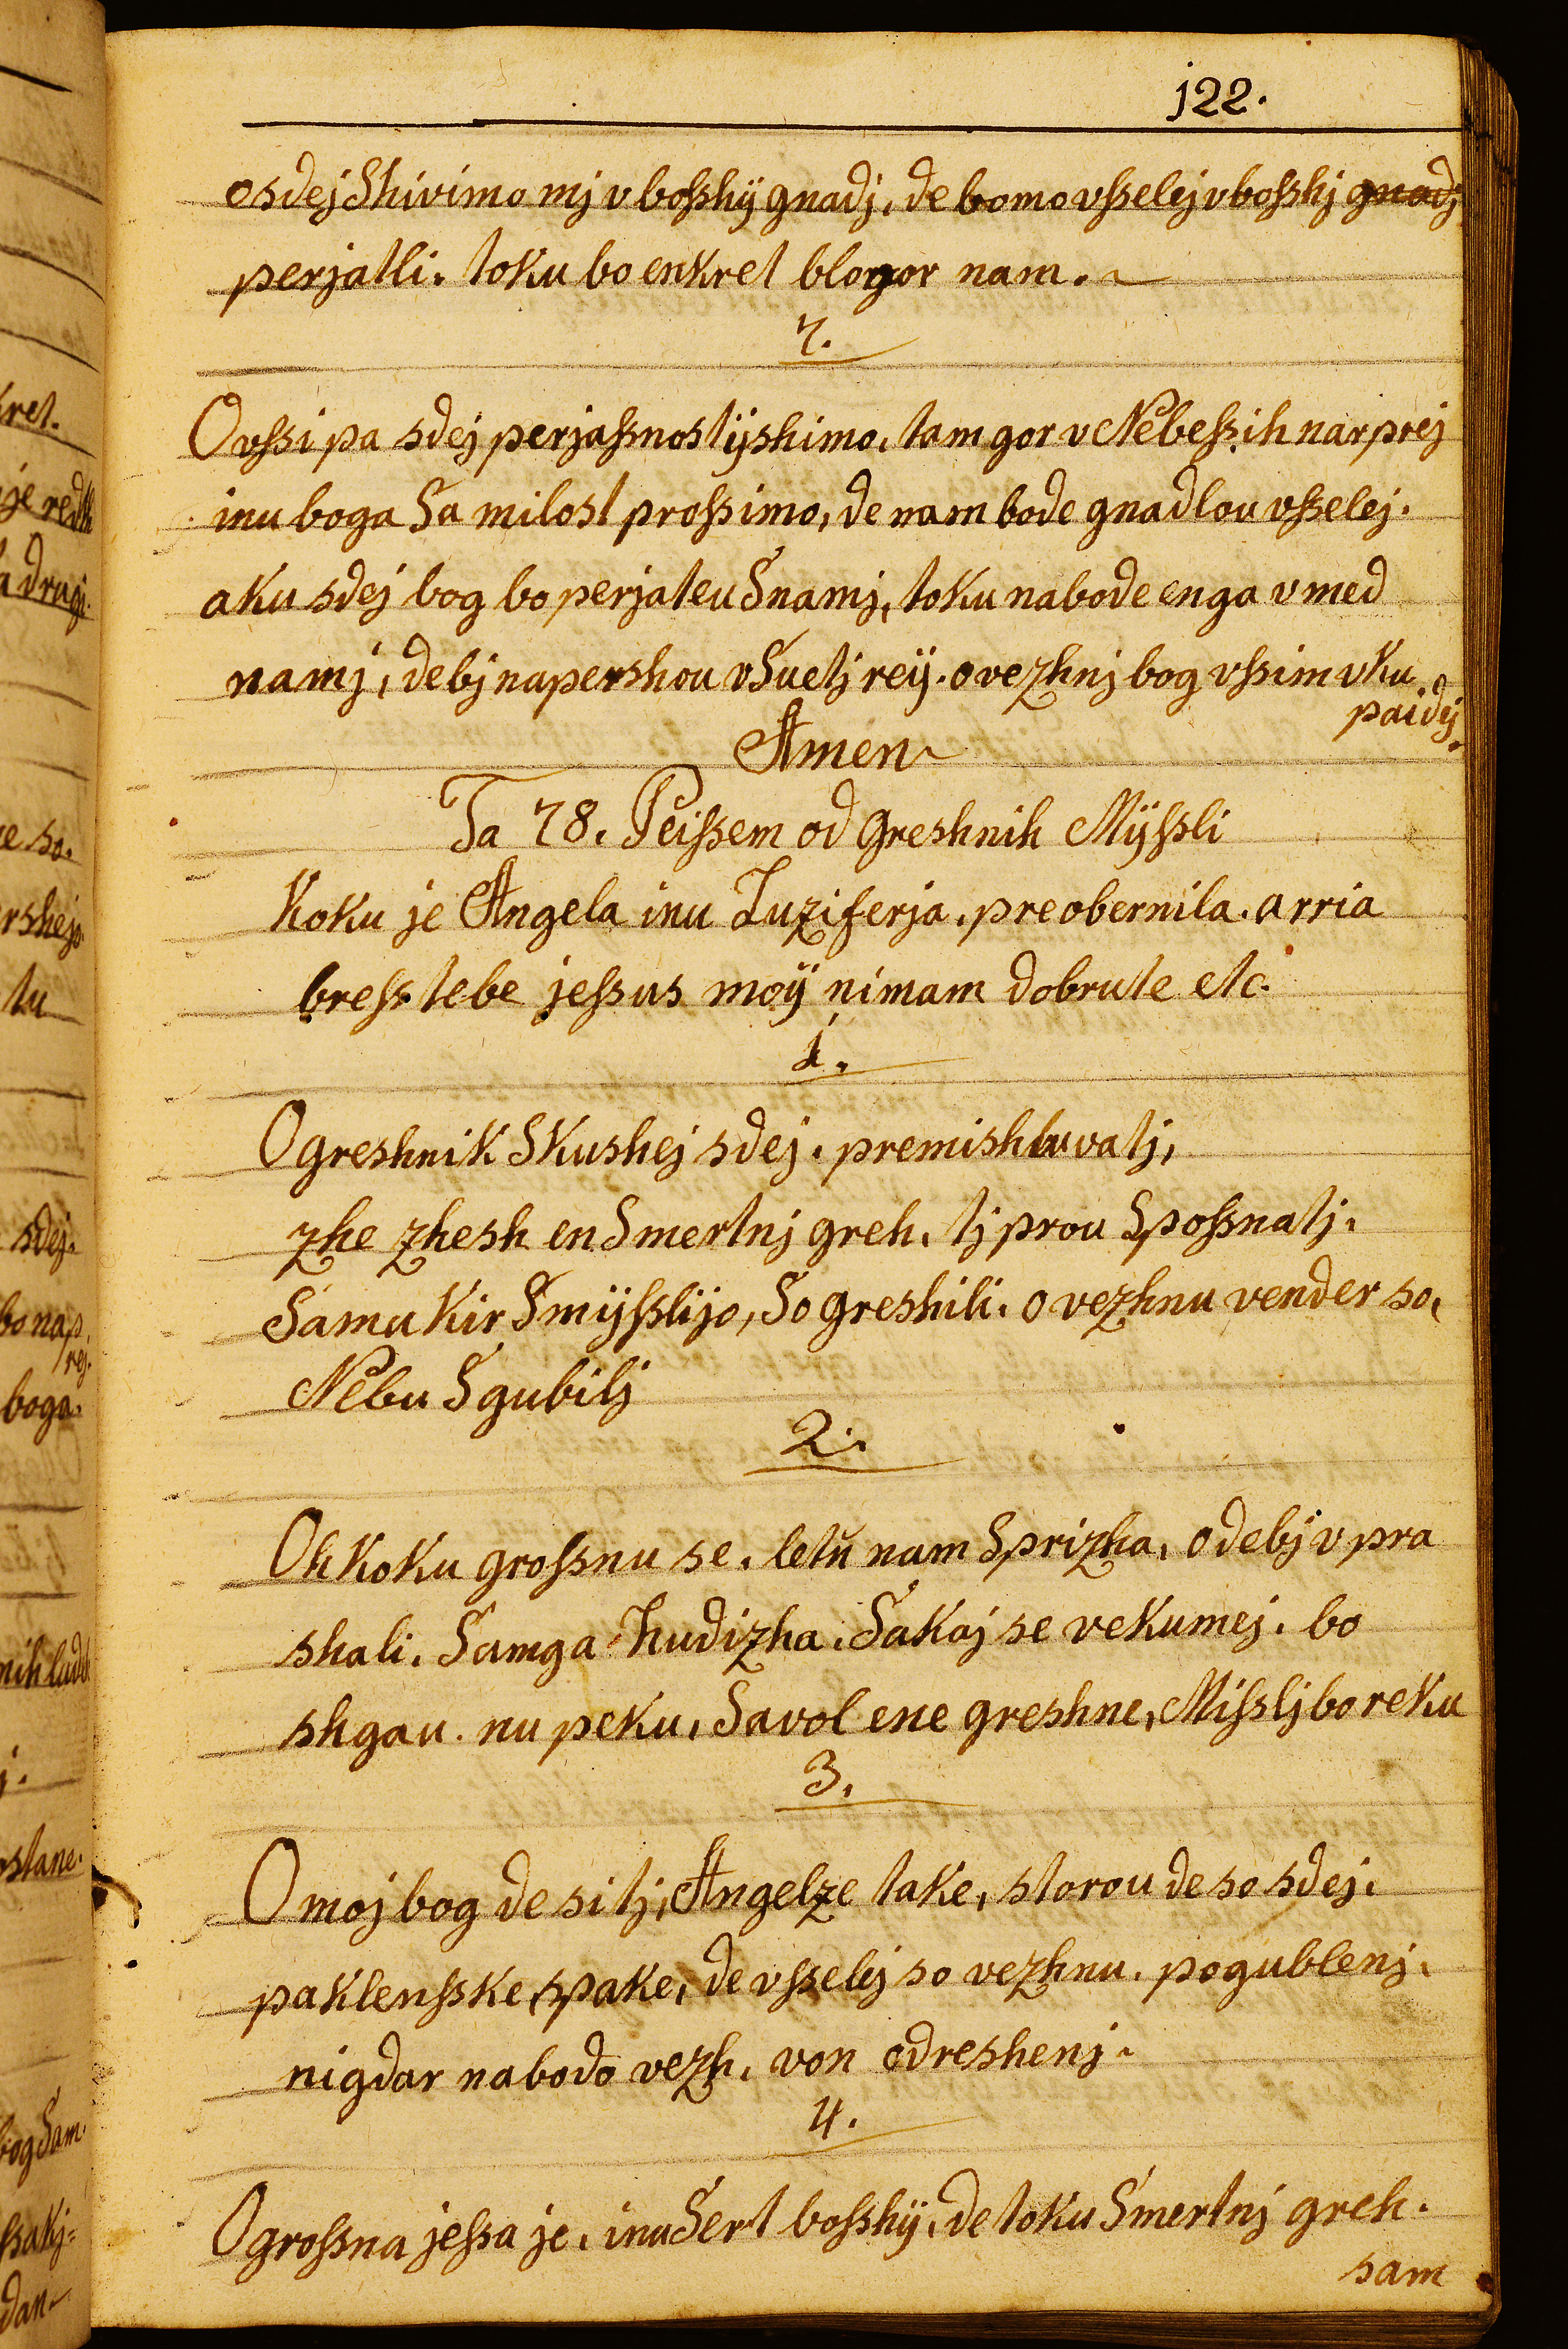 j22.
osdej Shivimo mj v bosshÿ gnadj, de bomo vsselej v bosshj gnadj
perjatli. toku bo enkret blogor nam.
7.
O vssi pa sdej perjassnost ÿshimo, tam gor v Nebessih nar prej
inu boga Sa milost prossimo, de nam bode gnadlou vsselej.
aku sdej bog bo perjateu Snamj, toku nabode enga v med
namj, de bj napershou v Suetj reÿ. o vezhnj bog vssim vku
paidÿ.
Amen
Ta 78. Peissem od greshnih Mÿssli
Koku je Angela inu Luziferja. preobernila. arria
bress tebe jessus moÿ nimam dobrute etc.
1.
O greshnik Skushej sdej. premishluvatj,
zhe zhesh en Smertnj greh. tj prou Spossnatj.
Samu kir Smÿsslijo, So greshili. o vezhnu vender so,
Nebu Sgubilj
2.
Oh koku grossnu se. letŭ nam Sprizha, o de bj v pra
shali. Samga hudizha. Sakaj se vekumej. bo
shgau. nu peku, Savol ene greshne, Misslj bo reku
3.
O moj bog de si tj, Angelze take, storou de so sdej.
paklensske spake, de vsselej so vezhnu. pogublenj.
nigdar nabodo vezh. von odreshenj.
4.
O grossna jessa je. inu Sert bosshÿ, de toku Smertnj greh.
sam